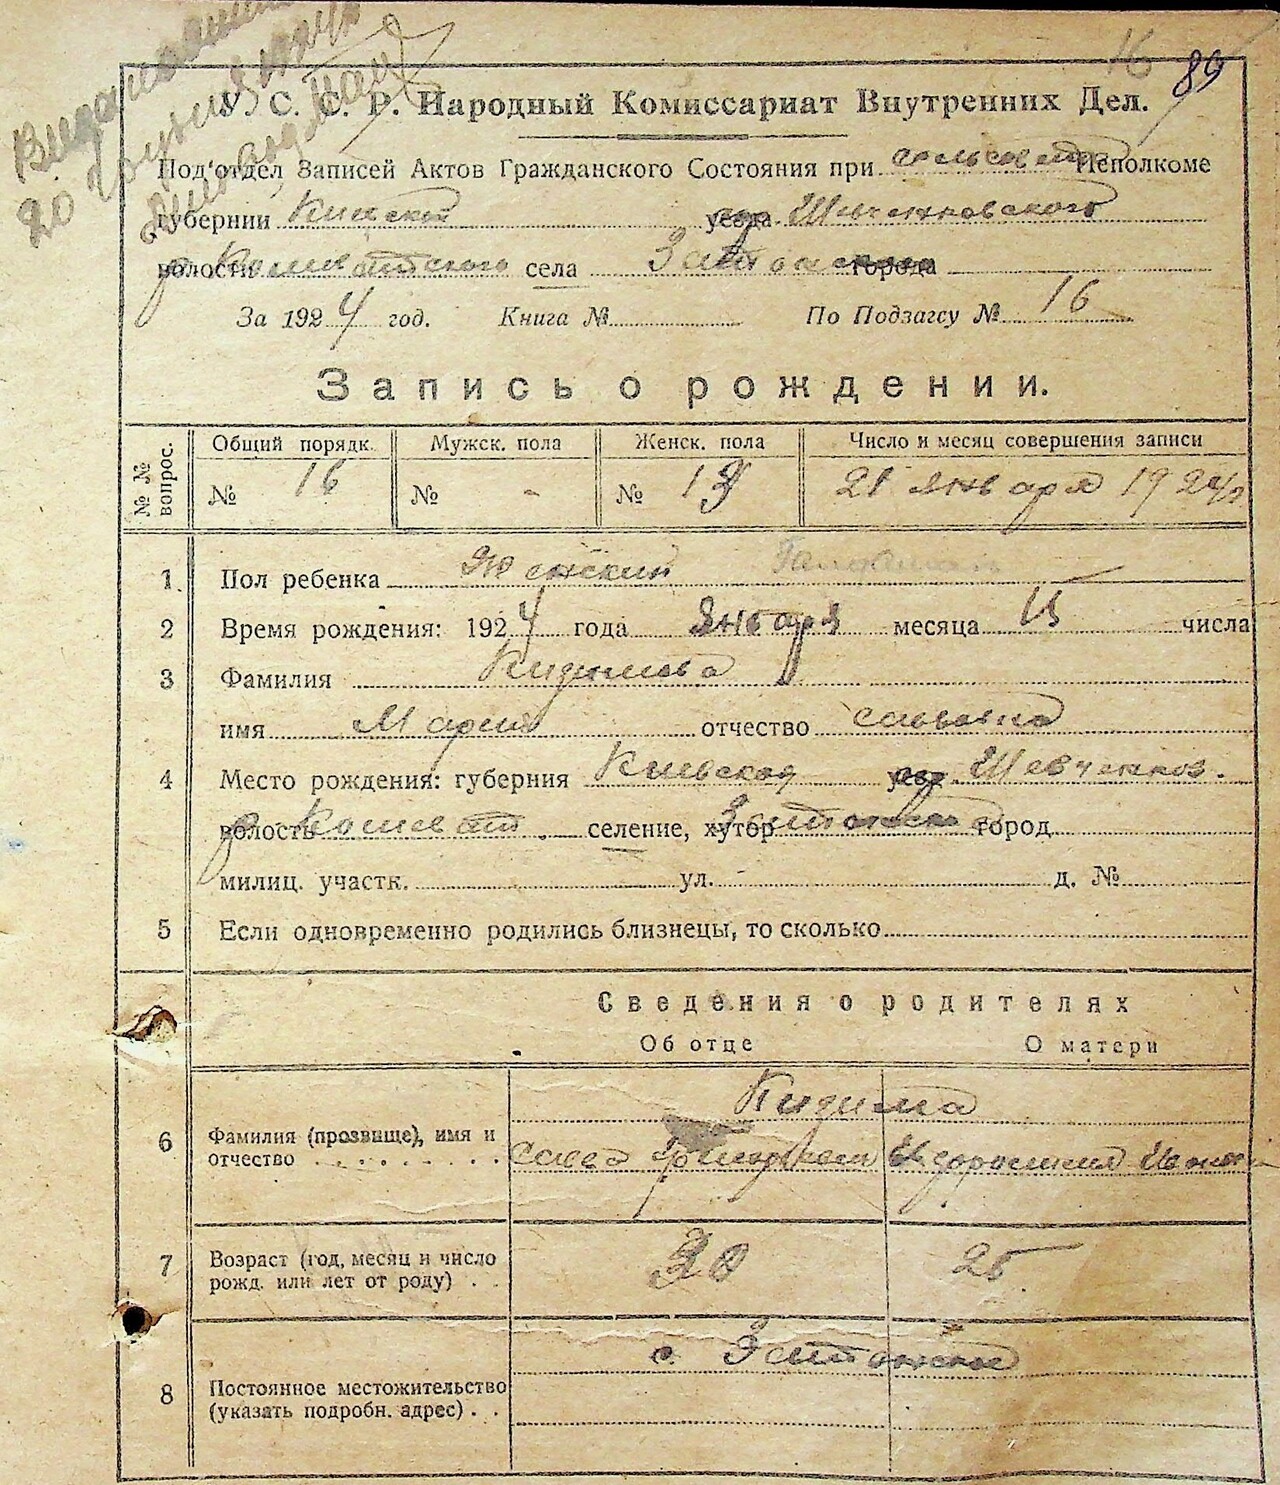 16 89
У. С. С. Р. Народный Комиссариат Внутренних Дел.
Под'отдел Записей Актов Гражданского Состояния при Исполкоме
губернии Киевской уезда Шевченковского
волости Кошеватского села города
За 1924 год. Книга № По Подзагсу № 16
Запись о рождении.
№ № вопрос.
Общий порядк. Мужск. пола Женск. пола Число и месяц совершения записи
№ 16 № - № 21 января 192
1 Пол ребенка Женский
2 Время рождения: 1924 года января месяца 15 числа
3 Фамилия
имя Мария отчество Саввовна
4 Место рождения: губерния Киевская уезд Шевченков.
волость Кошеват. селение, хутор город
милиц. участк. ул. д. №
5 Если одновременно родились близнецы, то сколько
Сведения о родителях
Об отце О матери
Кидима
6 Фамилия (прозвище), имя и
отчество Савва
7 Возраст (год, месяц и число
рожд. или лет от роду) 25
с.
8 Постоянное местожительство
(указать подробн. адрес)